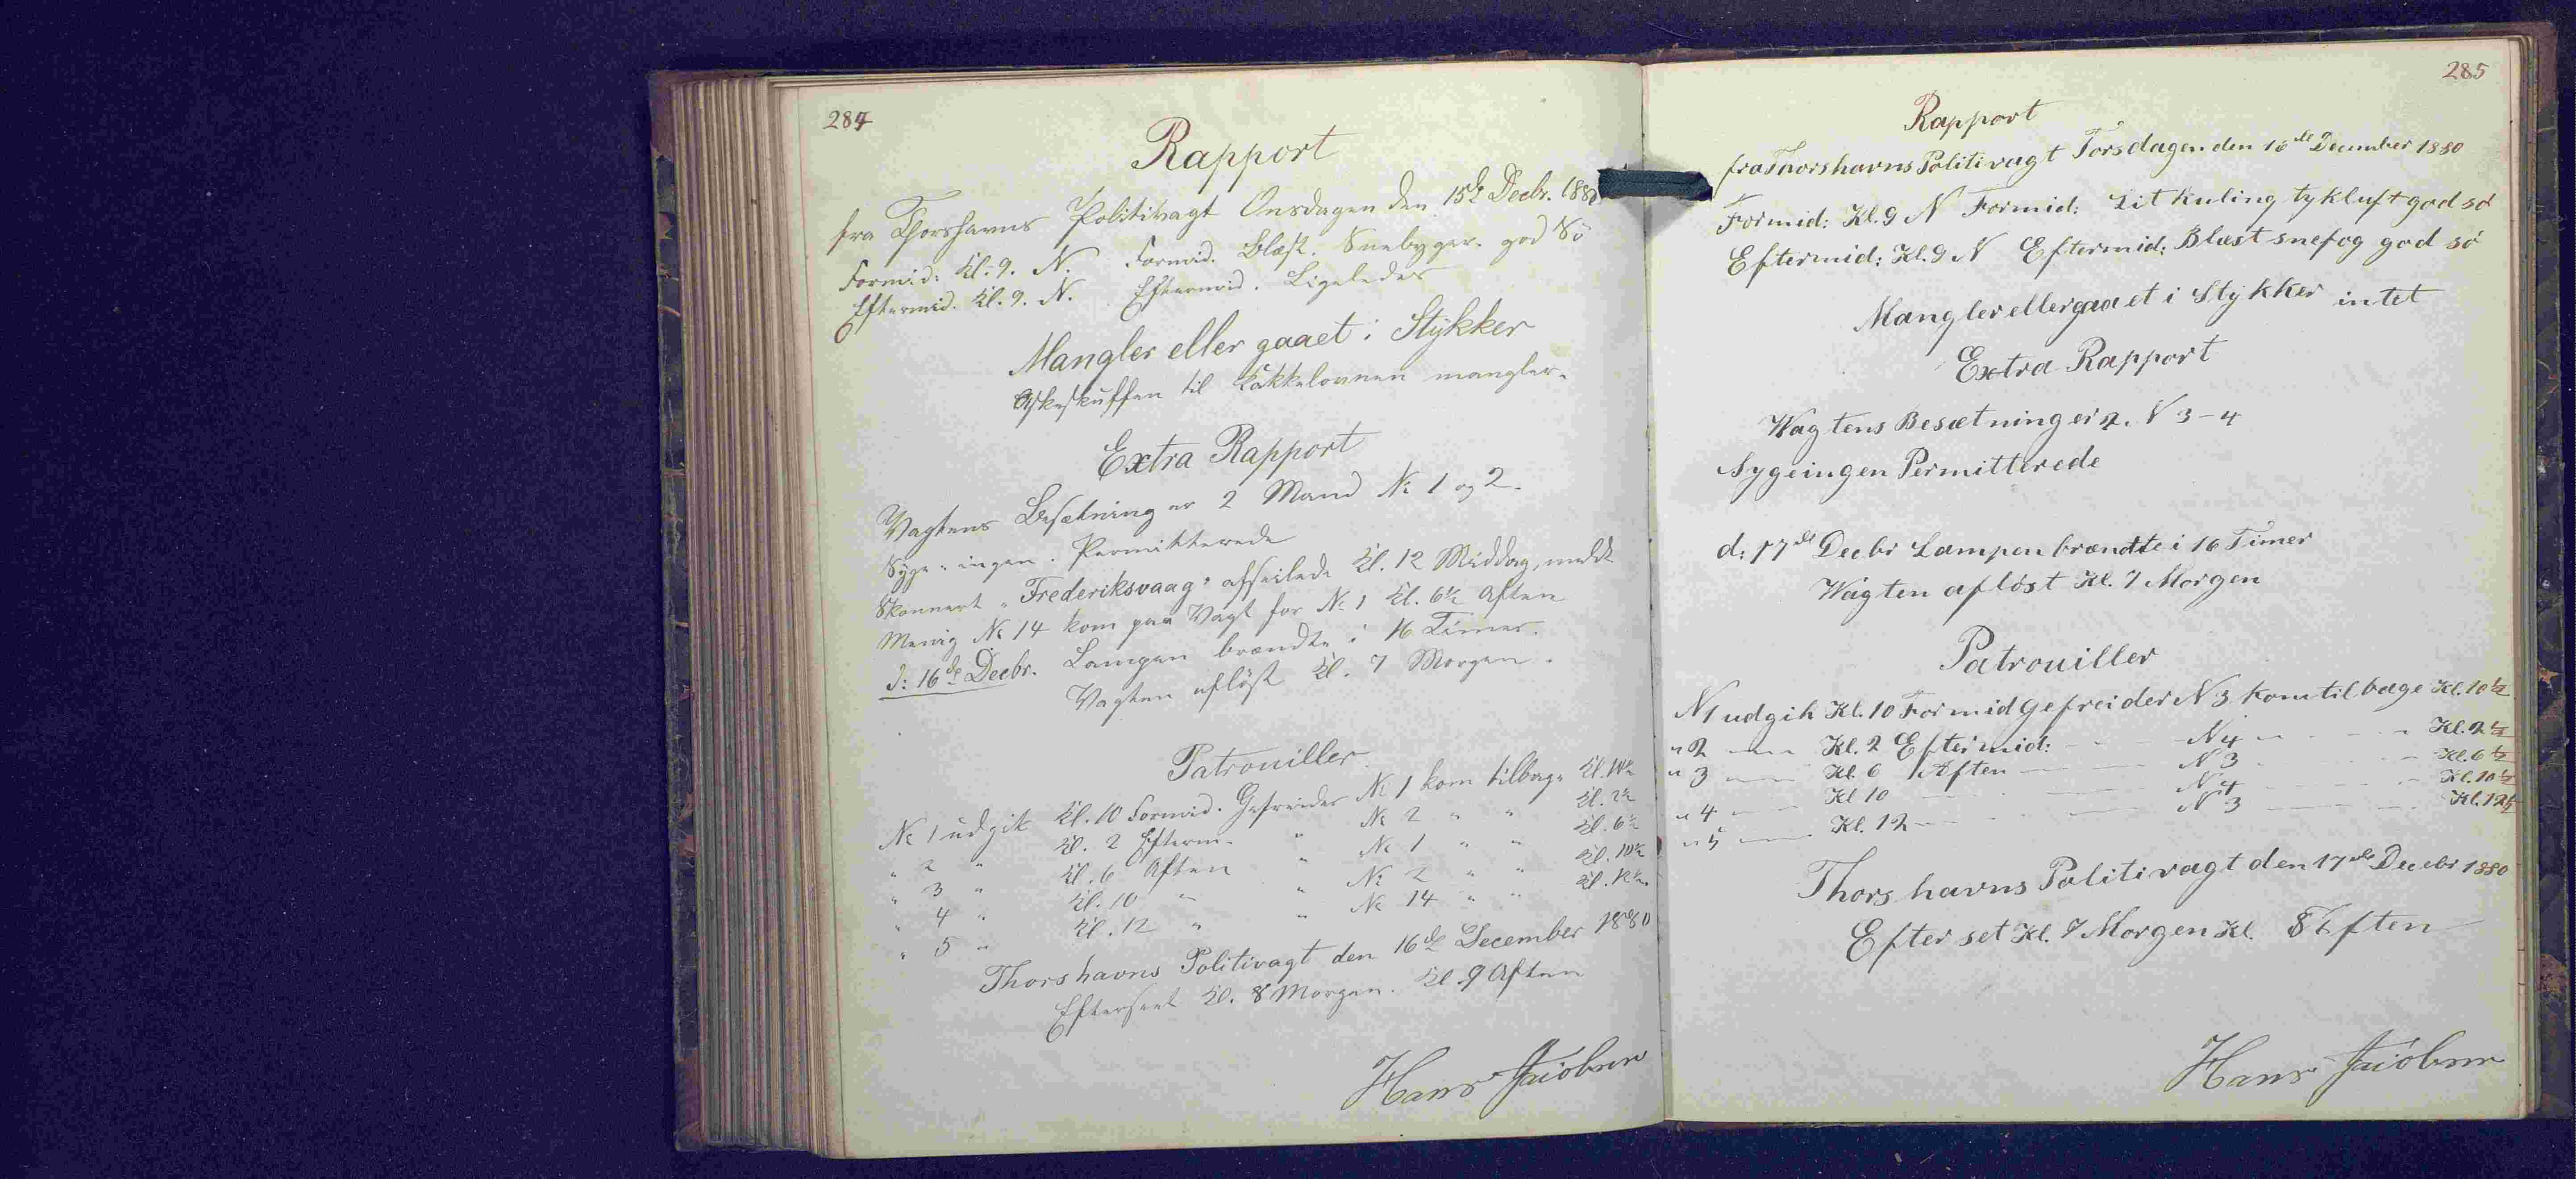 284
Rapport
fra Thorshavns Politivagt Onsdagen den 15de Decbr. 1880
Formid: Kl. 9. N. Formid. Blæst. Snebyger. god Sö
Eftermid. Kl. 9. N. Eftermid. Ligeledes
Mangler eller gaaet i Stykker
Askeskuffen til Kakkelovnen mangler.
Extra Rapport
Vagtens Besætning er 2 Mand No 1 og 2.
Syge: ingen. Permitterede
Skonnert "Frederiksvaag" afseilede Kl. 12 Middag, meldt
Menig No 14 kom paa Vagt for No 1 Kl. 6½ Aften
d: 16de Decbr. Lampen brændte i 16 Timer.
Vagten aflöst Kl. 7 Morgen.
Patrouiller.
No 1 udgik Kl. 10 Formid. Gefreider No 1 kom tilbage Kl. 10½
" 2 " Kl. 2 Efterm. " No 2 " " Kl. 2½
" 3 " Kl. 6 Aften " No 1 " " Kl. 6½
" 4 " Kl. 10 " " No 2 " " Kl. 10½
" 5 " Kl. 12 " " No 14 " " Kl. 12½
Thorshavns Politivagt den 16de December 1880
Efterseet Kl. 8 Morgen. Kl. 9 Aften
Hans
285
Rapport
fra Thorshavns Politivagt Torsdagen den 16de December 1880
Formid: Kl. 9 N Formid: Lit Kuling tykluft god sö
Eftermid: Kl. 9 N Eftermid: Blæst snefog god sö
Mangler eller gaaet i Stykker intet
Extra Rapport
Wagtens Besætning er 2. N 3-4
Syge ingen Permitterede
d: 17de Decbr Lampen brændte i 16 Timer
Wagten aflöst Kl. 7 Morgen
Patrouiller
N 1 udgik Kl. 10 Formid Gefreider N 3 kom tilbage Kl. 10½
" 2 — Kl. 2 Eftermid: — N 4 — Kl. 2½
" 3 — Kl. 6 Aften — N 3 — Kl. 6½
" 4 — Kl 10 — N 4 — Kl. 10½
" 5 — Kl. 12 — N 3 — Kl. 12½
Thorshavns Politivagt den 17de Decebr 1880
Efterset Kl. 9 Morgen Kl. 8 Aften
Hans